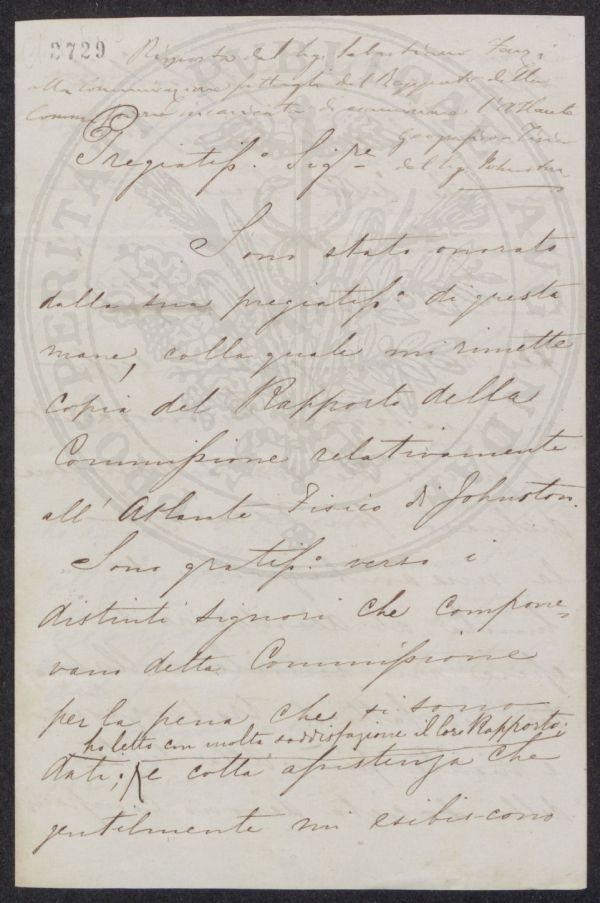 2729
Risposta del Sig. Sebastiano Fenzi
alla Comunicazione fattagli del Rapporto della
Commissione incaricata di esaminare l'Atlante
geografico Fisico
del Sig. Johnston
Pregiatiss.o Sig.re
Sono stato onorato
dalla sua pregiatiss.a di questa
mane, colla quale mi rimette
copia del Rapporto della
Commissione relativamente
all' Atlante Fisico di Johnston.
Sono gratiss.o verso i
distinti signori che compone-
vano detta Commissione
per la pena che si sono
ho letto con molta soddisfazione il loro Rapporto;
dati; e colla assistenza che
gentilmente mi esibiscono